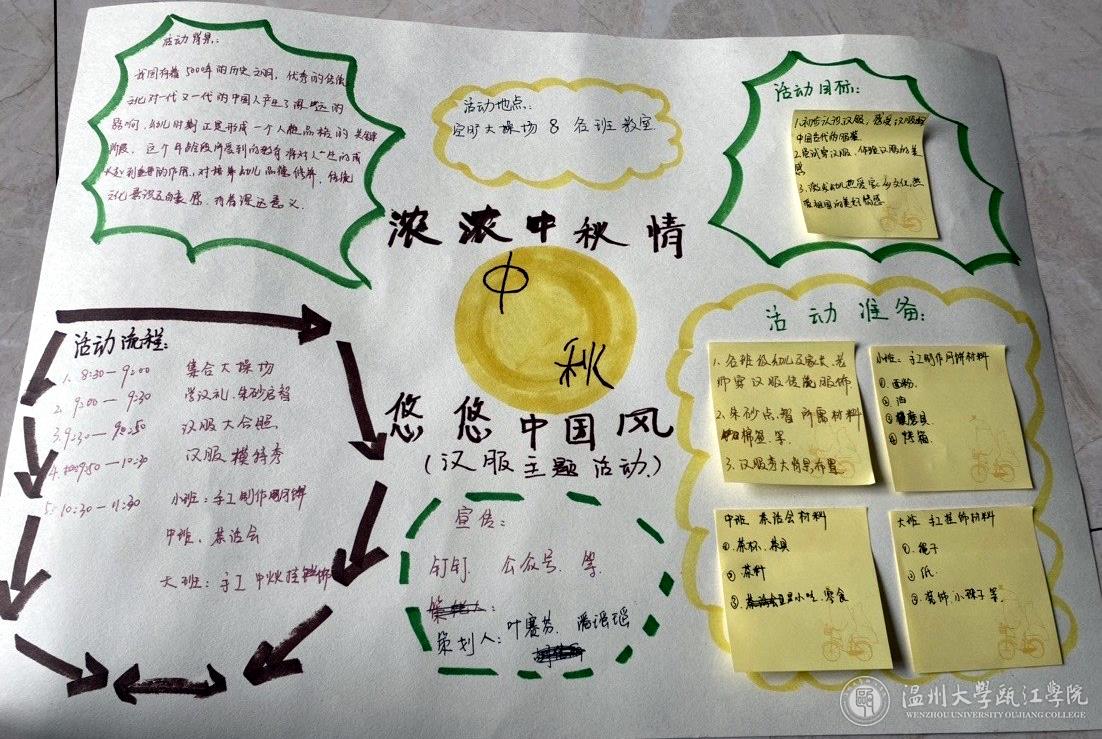 活动背景:
我国有着5000年的历史文明，优秀的传统
文化对一代又一代的中国人产生了深远的
影响，幼儿时期正是形成一个人人格品格的关键
阶段，这个年龄段所受到的教育将对人一生的成
长起到重要的作用，对培养幼儿品德修养、传统
文化意识及自豪感，有着深远意义.
活动地点:
空旷大操场 & 各班教室
活动目标:
1.初步认识汉服，感受汉服的
中国古代的服装
2.尝试穿汉服、体验汉服的美
感
3.激发幼儿热爱家乡的文化,热
爱祖国的美好情感
浓浓中秋情
中
秋
悠悠中国风
(汉服主题活动)
活动流程:
1. 8:30—9:00 集合大操场
2. 9:00—9:30 学汉礼、朱砂启智
3. 9:30—9:50 汉服大合照
4. 9:50—10:30 汉服模特秀
5. 10:30—11:30 小班：手工制作月饼
中班、茶话会
大班：手工中秋挂饰
宣传:
钉钉 公众号 等
策划人: 叶赛芬、潘瑶瑶
活动准备:
1. 各班级幼儿及家长、老
师穿汉服传统服饰
2. 朱砂点智所需材料
棉签.等.
3. 汉服秀大背景布置
小班: 手工制作月饼材料
①面粉
②油
③模具
④烤箱
中班 茶话会材料
①茶杯、茶具
②茶料
③小吃、零食
大班 手工挂饰材料
①绳子
②纸
③装饰小珠子等.
温州大学瓯江学院
WENZHOU UNIVERSITY OUJIANG COLLEGE